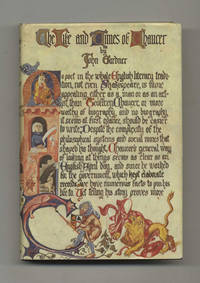 The Life and Times of Chaucer
by
John Gardner
No poet in the whole English literary tradi-
tion, not even Shakespeare, is more
appealing, either as a man or as an art-
ist, than Geoffrey Chaucer, or more
worthy of biography, and no biography,
it seems at first glance, should be easier
to write. Despite the complexity of the
philosophical systems and social mores that
shaped his thought, Chaucer's general way
of looking at things seems as clear as an
English April day, and since he worked
for the government, which kept elaborate
records, we have numerous facts to pin his
life to. Yet telling his story proves more